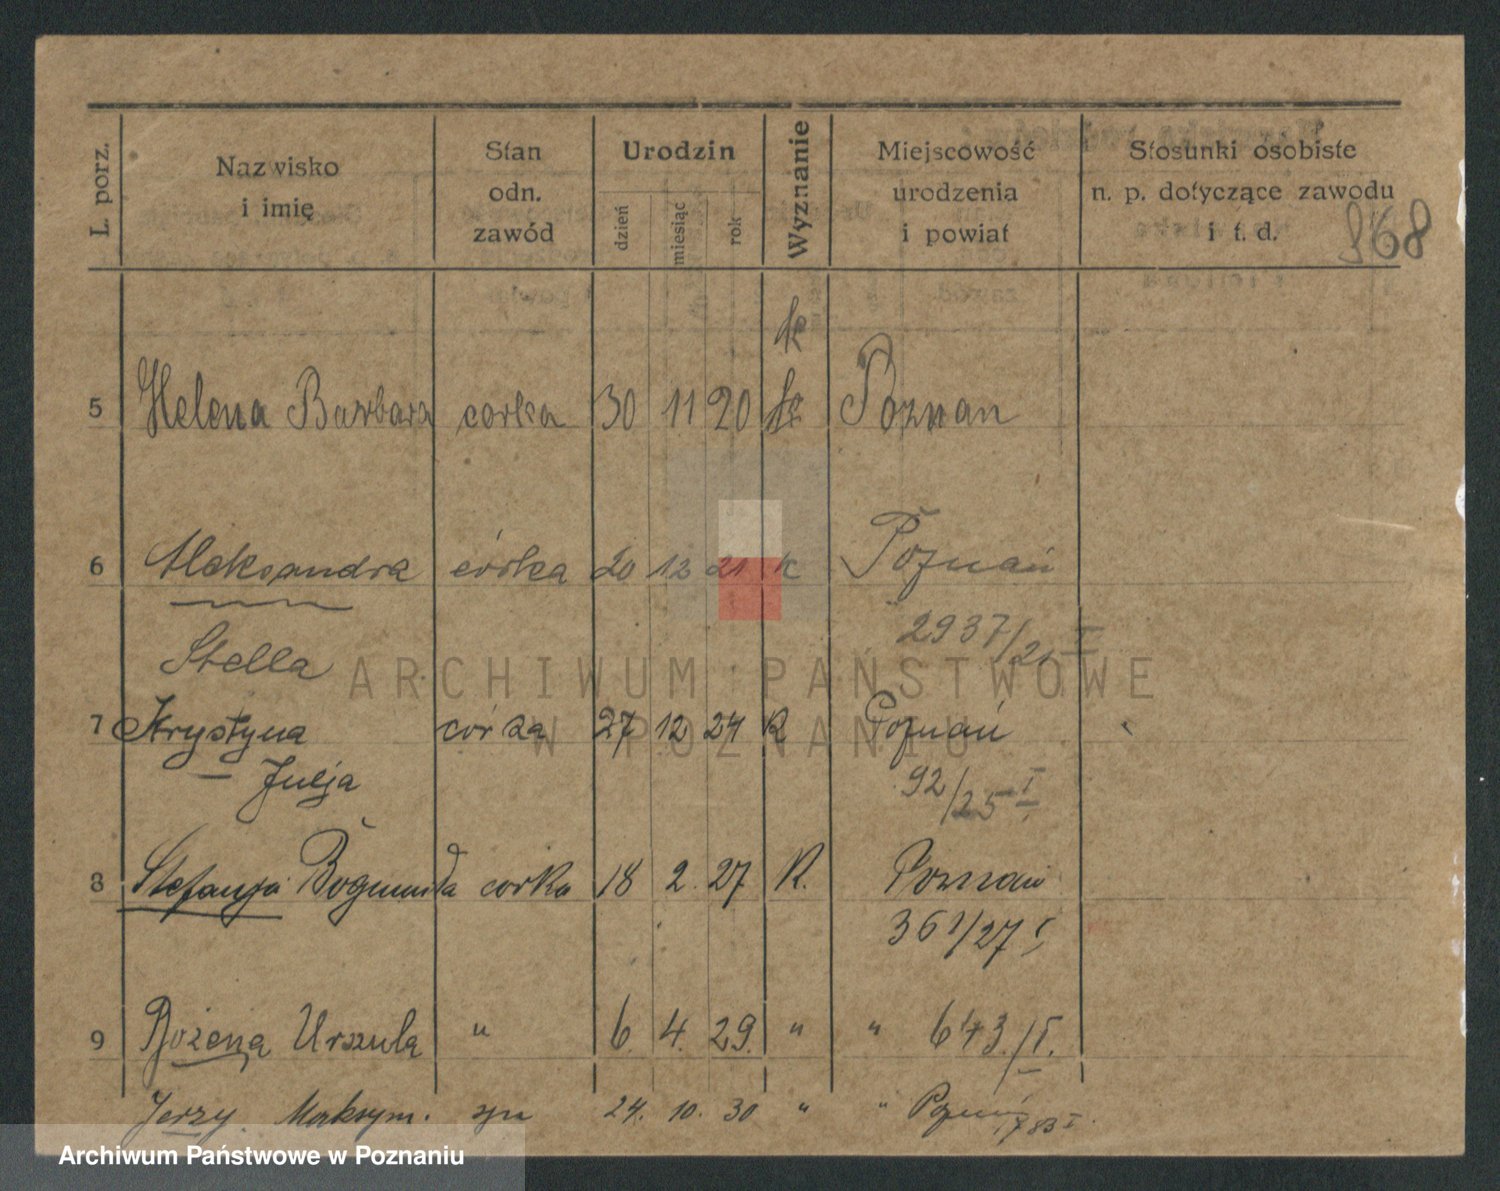 L. porz.
Nazwisko i imię
Stan odn. zawód
Urodzin
dzień
miesiąc
rok
Wyznanie
Miejscowość urodzenia i powiat
Stosunki osobiste n. p. dotyczące zawodu i t. d.
968
k
5 Helena Barbara corka 30 11 20 k Poznan
6 Aleksandra córka 20 12 21 k Poznań
2937/21 I
Stella
ARCHIWUM PAŃSTWOWE
W POZNANIU
7 Krystyna córka 27 12 24 k Poznań
Julja 92/25 I
8 Stefanja Bogumiła corka 18 2. 27 K. Poznań
361/27 I
9 Bożena Urszula " 6. 4. 29. " " 643./I.
Jerzy Maksym. syn 24. 10. 30 " "
Archiwum Państwowe w Poznaniu